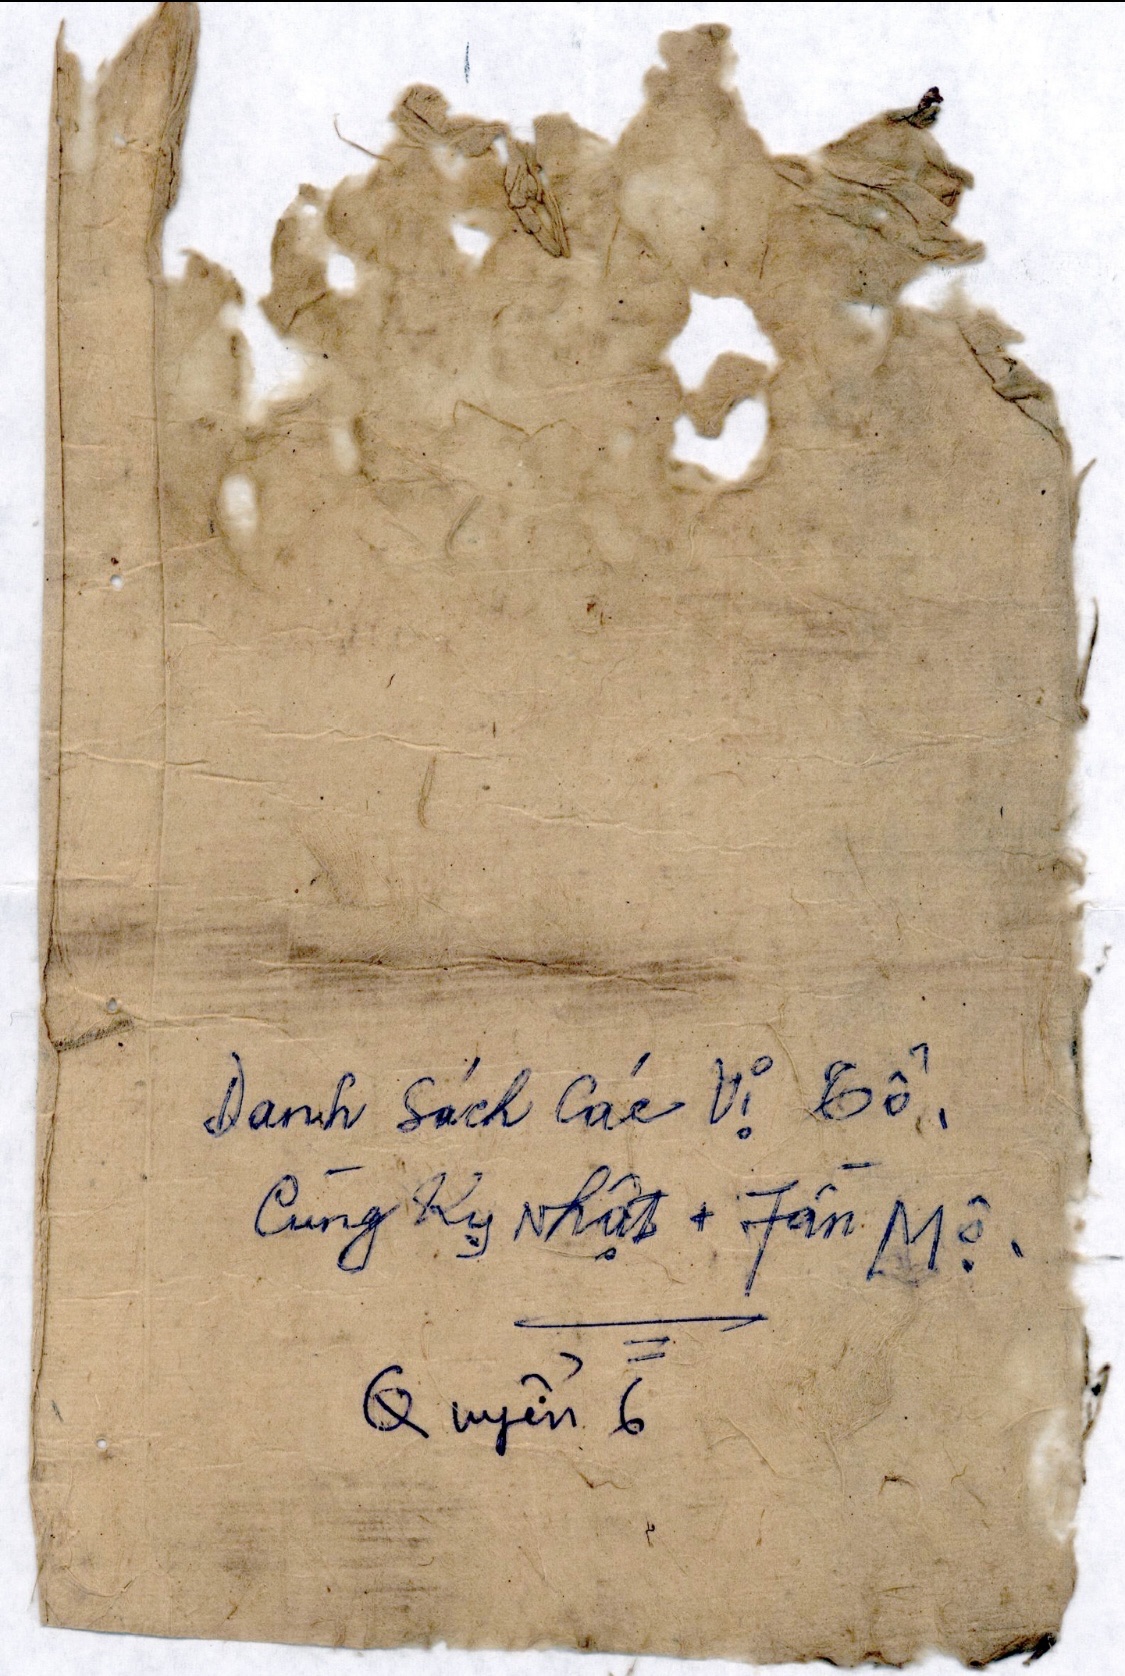 Danh Sách Các Vị Tổ.
Cùng Kỵ Nhật + Tán Mộ.
Quyển 6